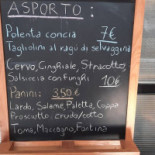 ASPORTO:
Polenta concia 7€
Tagliolini al ragù di selvaggina
Cervo, Cinghiale, Stracotto,
Salsiccia con funghi 10€
Panini: 3.50€
Lardo, Salame, Paletta, Coppa
Prosciutto: crudo/cotto
Toma, Maccagno, Fontina